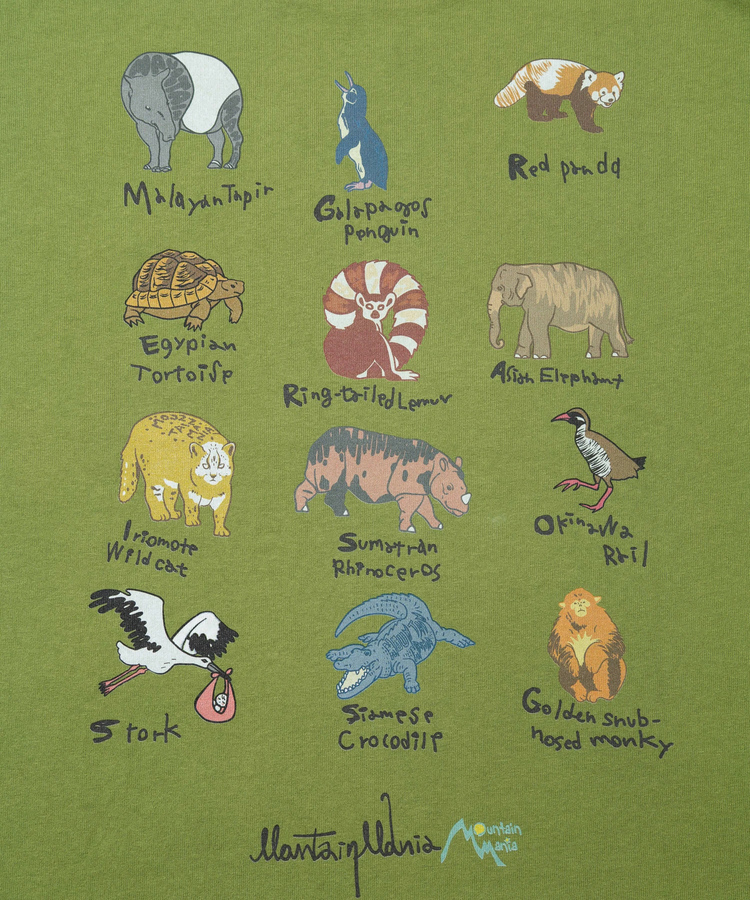 Malayan Tapir
Galapagos
Penguin
Red panda
Egypian
Tortoise
Ring-tailed Lemur
Asian Elephant
Iriomote
Wildcat
Sumatran
Rhinoceros
Okinawa
Rail
Stork
Siamese
Crocodile
Golden snub-
nosed monky
MountainMania
Mountain
Mania